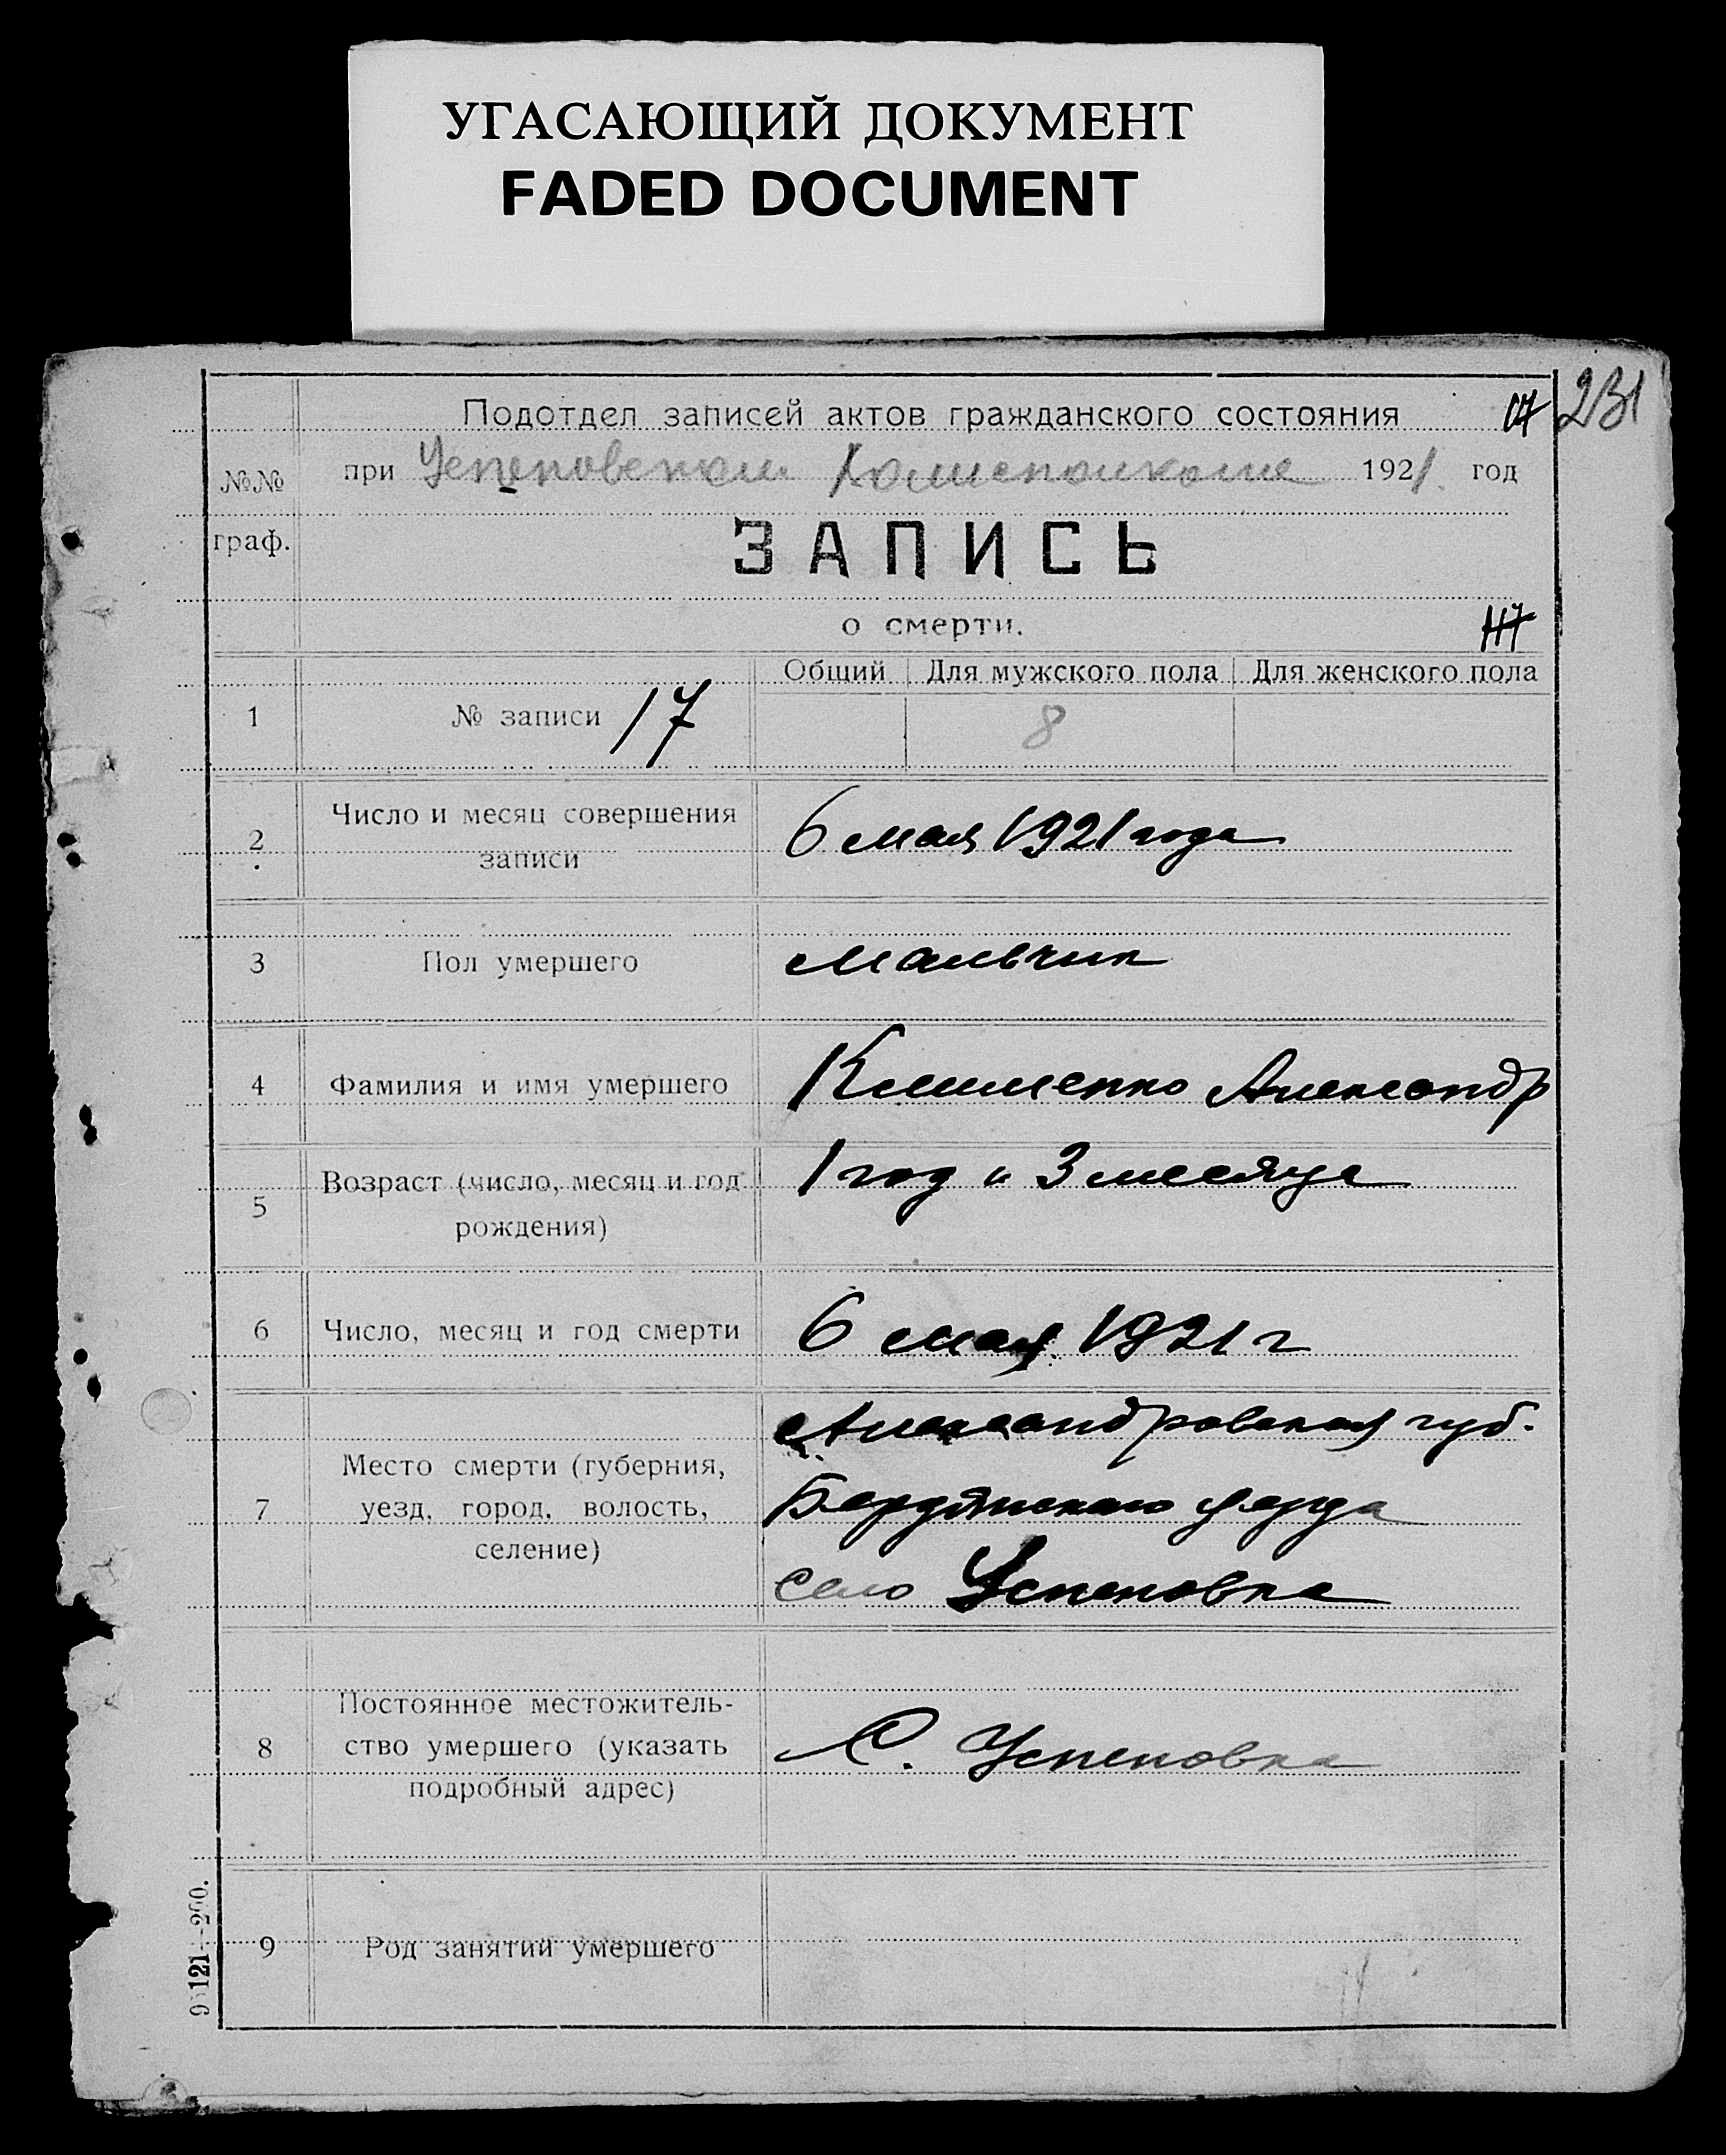 УГАСАЮЩИЙ ДОКУМЕНТ
FADED DOCUMENT
231
Подотдел записей актов гражданского состояния
№№ граф.
при Успеновском 1921. год
ЗАПИСЬ
о смерти.
Общий Для мужского пола Для женского пола
1 № записи 17 8
2 Число и месяц совершения
записи
6 мая 1921 года
3 Пол умершего мальчик
4 Фамилия и имя умершего Клименко Александр
5 Возраст (число, месяц и год
рождения)
1 год и 3 месяца
6 Число, месяц и год смерти 6 мая 1921 г
7 Место смерти (губерния,
уезд, город, волость,
селение)
Александровская губ.
Бердянского уезда
село Успеновка
8 Постоянное местожитель-
ство умершего (указать
подробный адрес)
С. Успеновка
9 Род занятий умершего